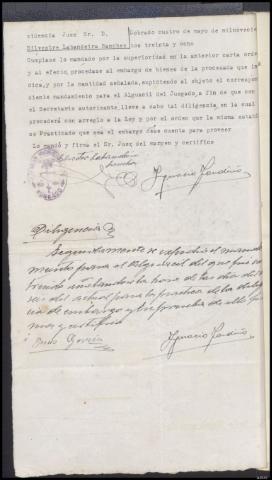 videncia Juez Sr. D. Dobrado cuatro de mayo de milnovecien
Silvestre Labandeira Sanchez tos treinta y ocho
Cumplase lo mandado por la superioridad en la anterior carta orden
y al efecto, procedase al embargo de bienes de la procesada que in
dica, y por la cantidad señalada, expidiendo al objeto el correspon
diente mandamiento para el Alguacil del Juzgado, a fin de que con
el Secretario autorizante, lleve a cabo tal diligencia, en la cual
procederá con arreglo a la Ley y por el orden que la misma establ
ce Practicado que sea el embargo dese cuenta para proveer
Lo mandó y firma el Sr. Juez del margen y certifico
Silvestre Labandeira
Sanchez
Ignacio
Diligencia
Seguidamente se expedió el manda
miento para el Alguacil del
señalandose la hora de las diez del
seis del actual para la práctica de la diligen
cia de embargo y en prueba de ello fir
ma y certifico
García
Ignacio